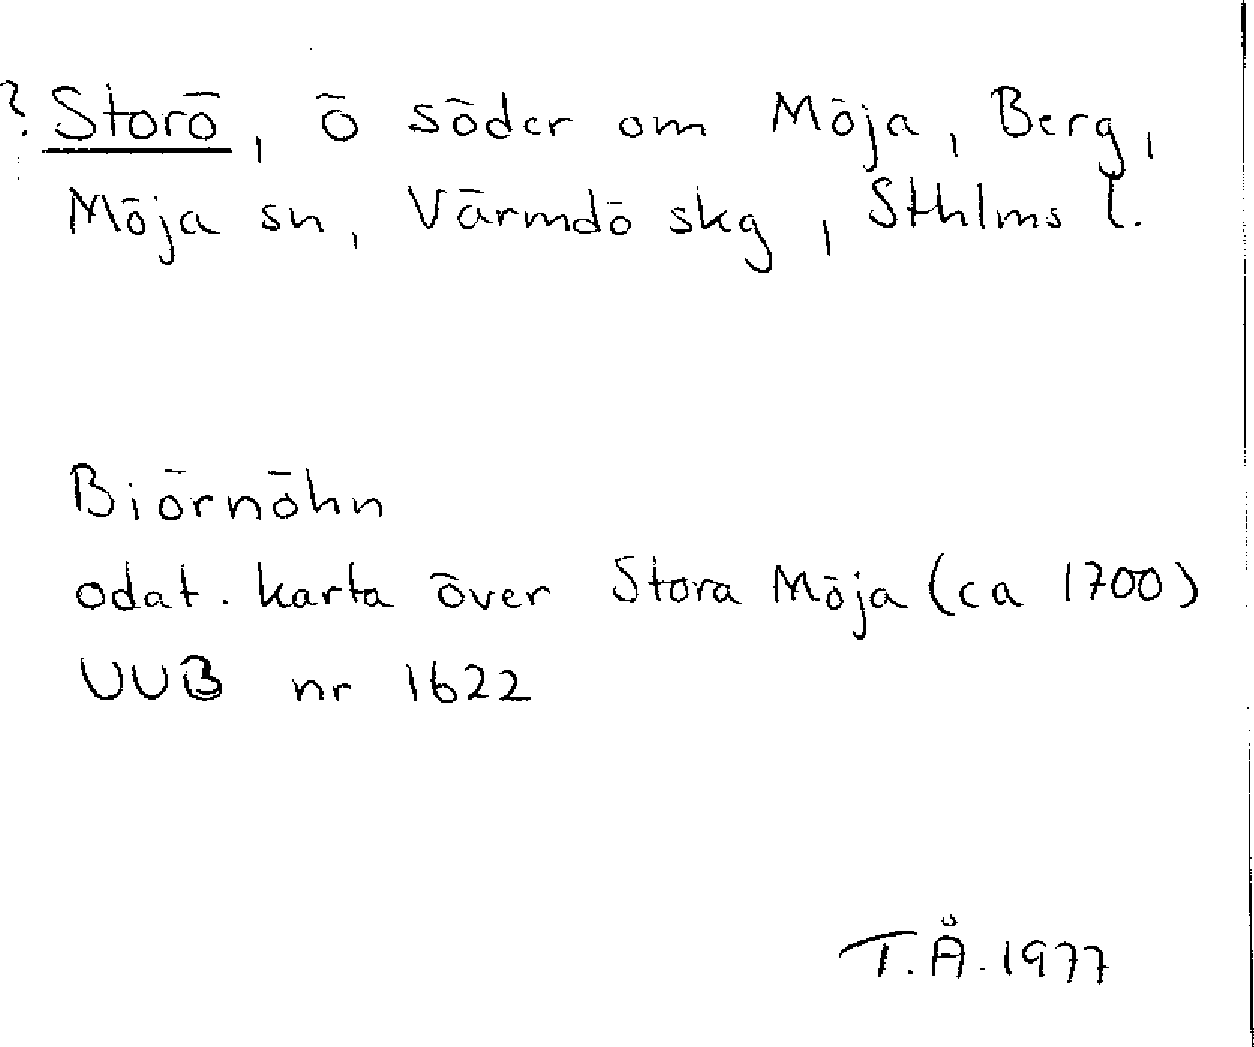 ? Storö, ö söder om Möja, Berg,
Möja sn, Värmdö skg, Sthlms l.
Biörnöhn
odat. karta över Stora Möja (ca 1700)
UUB nr 1622
T.Å. 1977